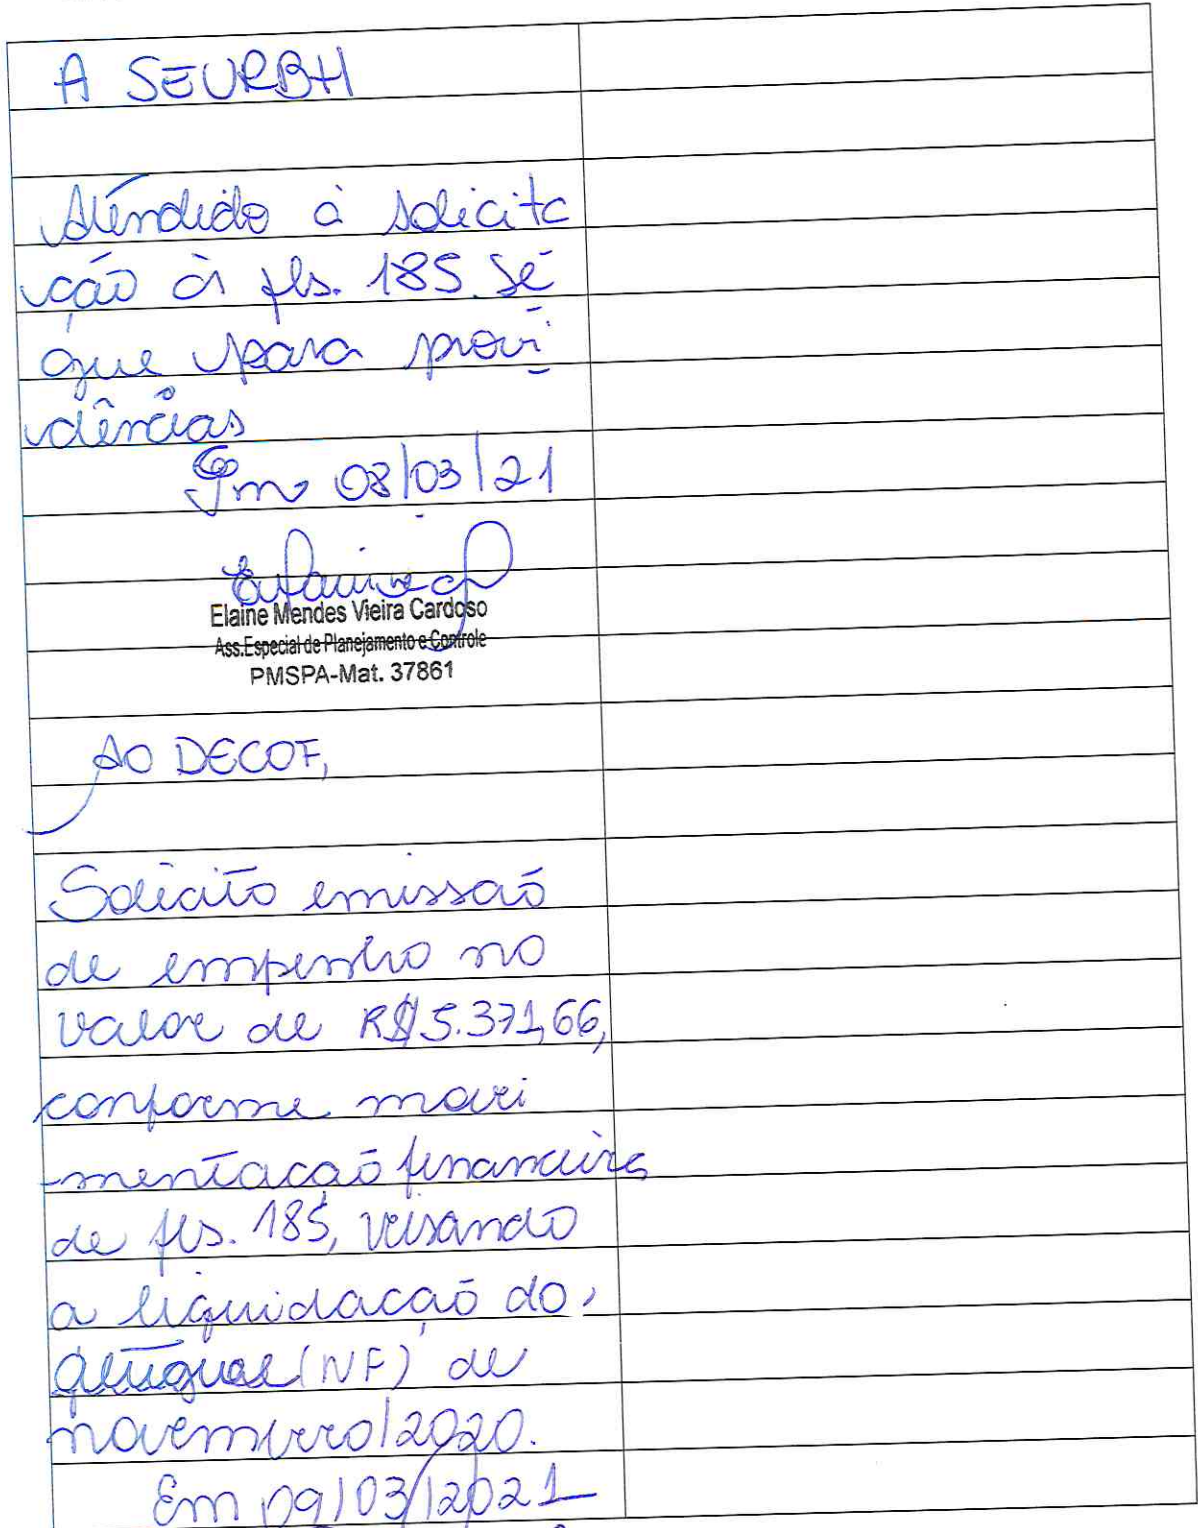 A SEURBH
Atendido à solicita
ção à fls. 185. Se
gue para provi
dências
Em 08/03/21
Elaine Mendes Vieira Cardoso
Ass.Especial de Planejamento e Controle
PMSPA-Mat. 37861
AO DECOF,
Solicito emissão
de empenho no
valor de R$ 5.371,66,
conforme movi
-mentação financeira
de fls. 185, visando
a liquidação do
aluguel (NF) de
novembro/2020.
Em 09/03/2021